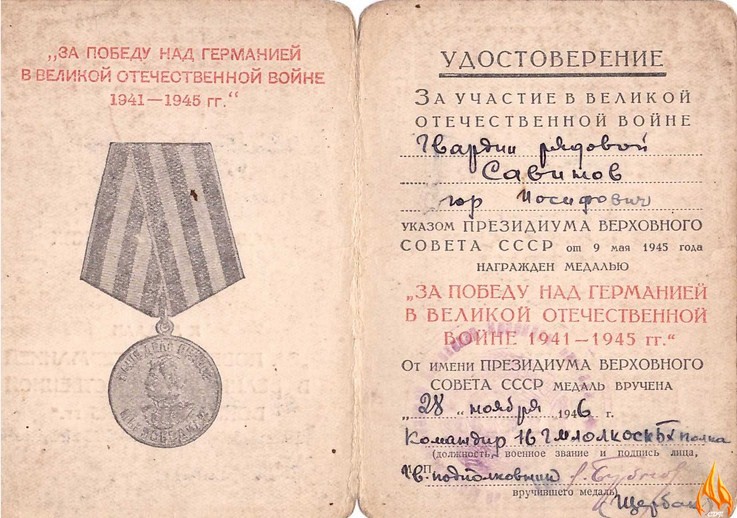 „ЗА ПОБЕДУ НАД ГЕРМАНИЕЙ
В ВЕЛИКОЙ ОТЕЧЕСТВЕННОЙ ВОЙНЕ
1941—1945 гг.“
НАШЕ ДЕЛО ПРАВОЕ
МЫ ПОБЕДИЛИ
УДОСТОВЕРЕНИЕ
ЗА УЧАСТИЕ В ВЕЛИКОЙ
ОТЕЧЕСТВЕННОЙ ВОЙНЕ
Гвардии рядовой
Савинов
Иосифович
УКАЗОМ ПРЕЗИДИУМА ВЕРХОВНОГО
СОВЕТА СССР от 9 мая 1945 года
НАГРАЖДЕН МЕДАЛЬЮ
„ЗА ПОБЕДУ НАД ГЕРМАНИЕЙ
В ВЕЛИКОЙ ОТЕЧЕСТВЕННОЙ
ВОЙНЕ 1941—1945 гг.“
От ИМЕНИ ПРЕЗИДИУМА ВЕРХОВНОГО
СОВЕТА СССР МЕДАЛЬ ВРУЧЕНА
„28 „ ноября 1946 г.
Командир 16 полка
(должность, военное звание и подпись лица,
М.П.
Гв. подполковник
вручившего медаль)